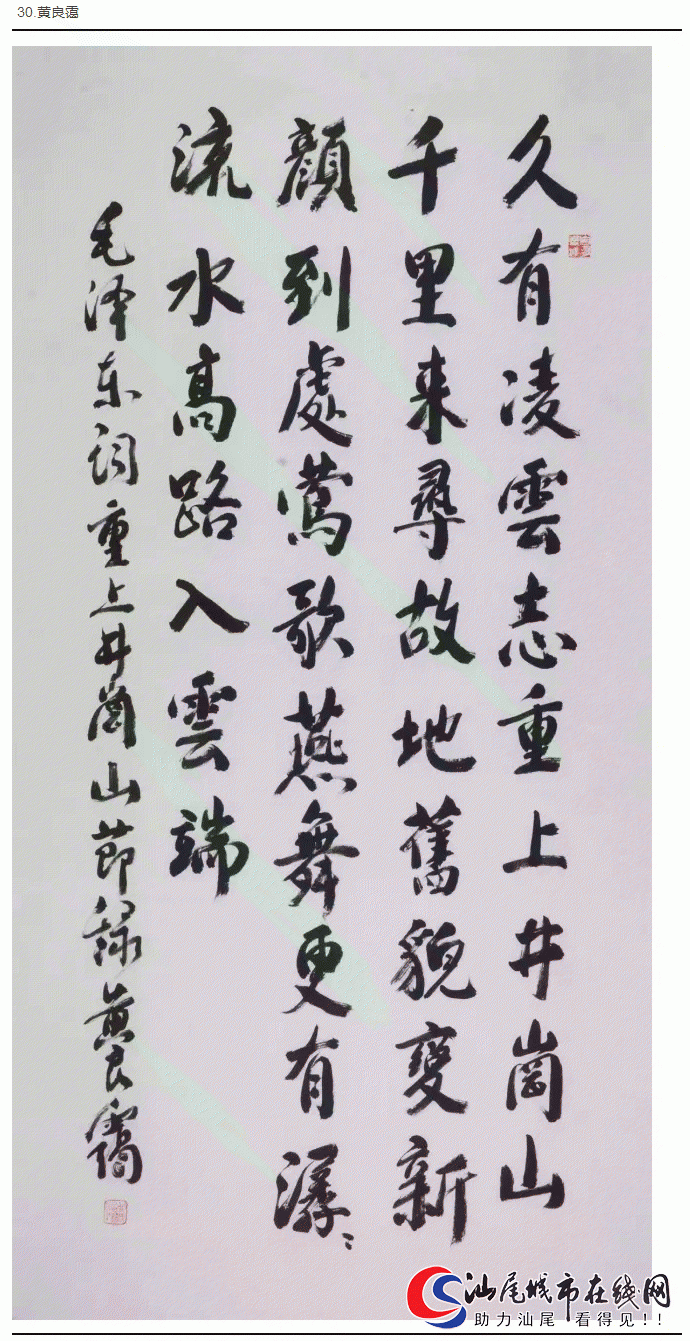 30.黄良霭
久有凌雲志重上井崗山
千里来尋故地舊貌變新
顔到處鶯歌燕舞更有潺〻
流水高路入雲端
毛泽东词重上井崗山節録黄良靄
汕尾城市在线网
助力汕尾 看得见!!